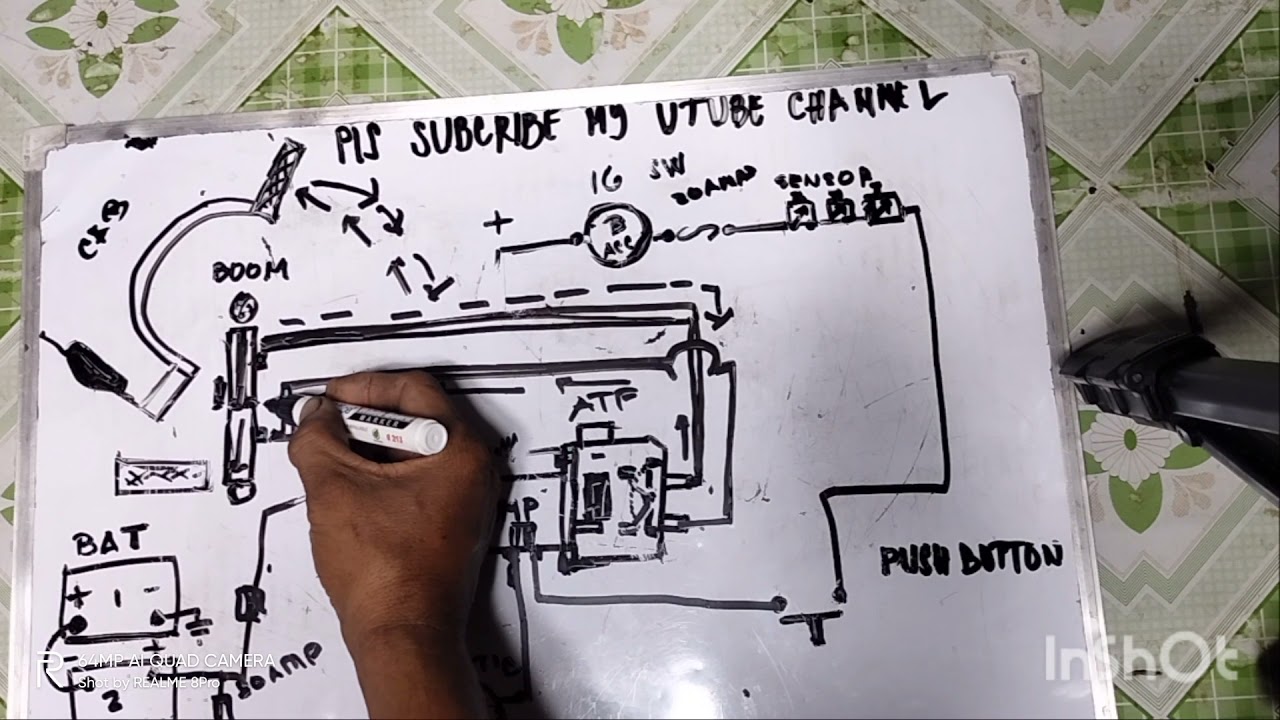 PLS SUBCRIBE MY UTUBE CHANNEL
IG
SW
30AMP
SENSOR
+
B
ACC
BOOM
ATF
MARKER
PUSH BUTTON
BAT
+ 1 -
2
30AMP
R
64MP AI QUAD CAMERA
Shot by REALME 8Pro
InShOt